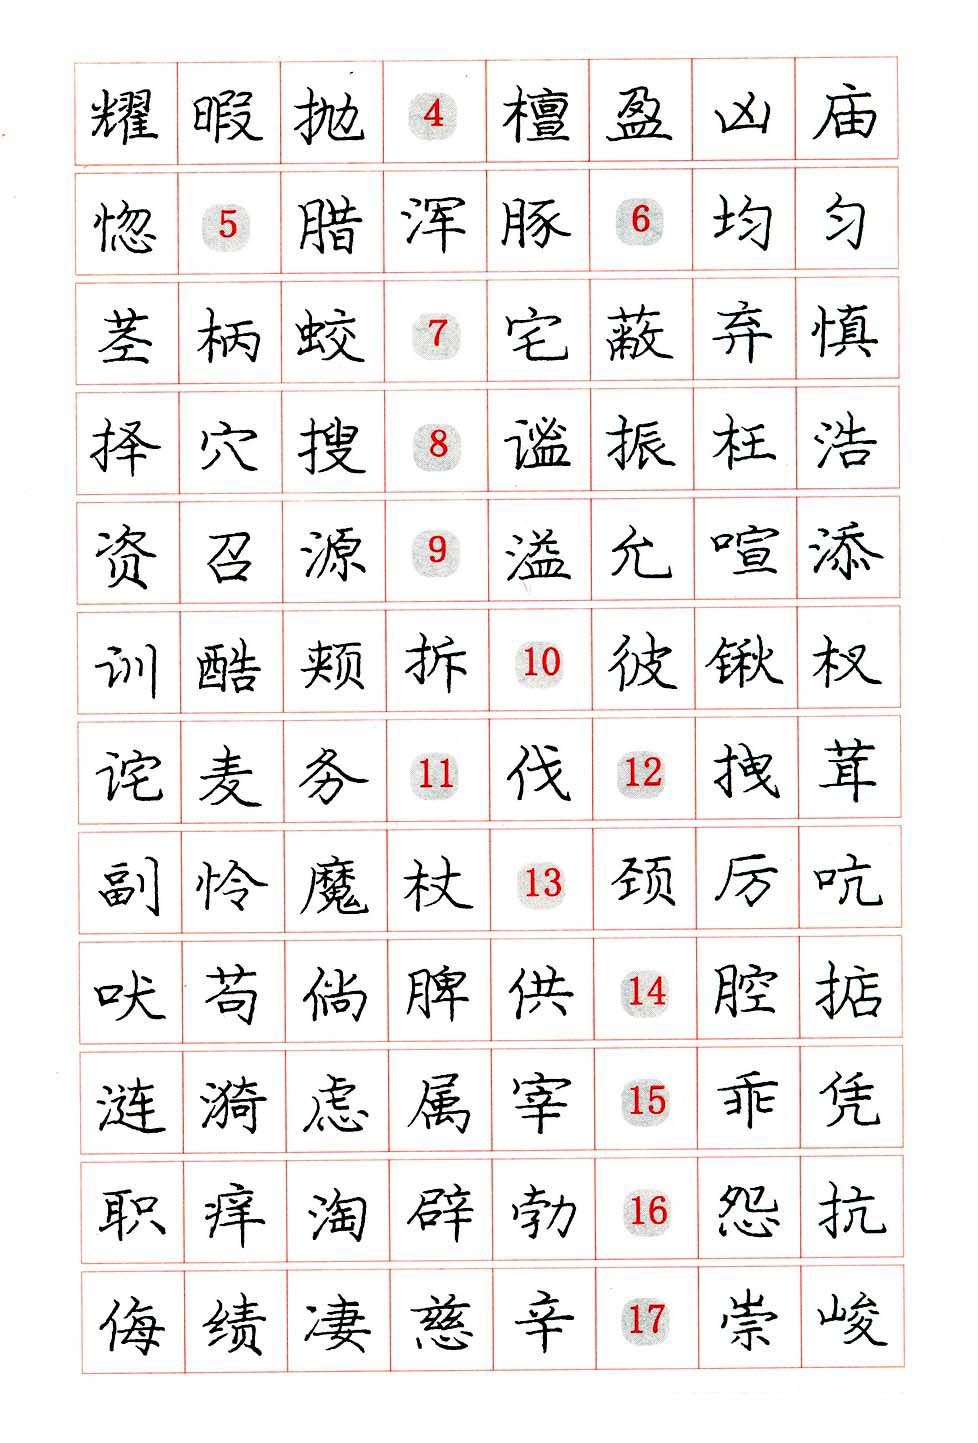 耀暇抛4檀盈凶庙
惚5腊浑豚6均匀
茎柄蛟7宅蔽弃慎
择穴搜8谧振枉浩
资召源9溢允喧添
训酷颊拆10彼锹杈
诧麦务11伐12拽茸
副怜魔杖13颈厉吭
吠苟倘脾供14腔掂
涟漪虑属宰15乖凭
职痒淘辟勃16怨抗
侮绩凄慈辛17崇峻